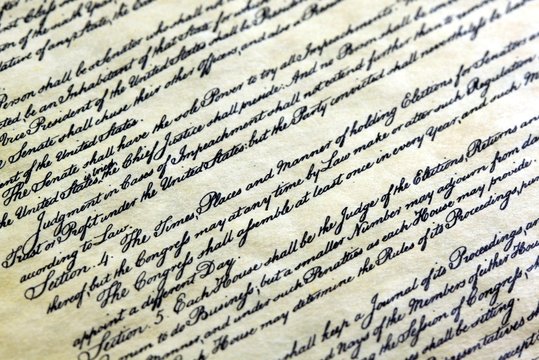 Person shall be a Senator who shall not
ted be an Inhabitant of that State for which
Vice President of the United States shall be President
e Senate shall chuse their other Officers, and also a
ent of the United States.
The Senate shall have the sole Power to try all Impeachments.
the United States, the Chief Justice shall preside: And no Person shall be
Judgment in Cases of Impeachment shall not extend further than to
Trust or Profit under the United States: but the Party convicted shall nevertheless be
according to Law.
Section. 4. The Times, Places and Manner of holding Elections for Senators
thereof; but the Congress may at any time by Law make or alter such Regulations
The Congress shall assemble at least once in every Year, and such
appoint a different Day.
Section. 5. Each House shall be the Judge of the Elections, Returns and
orum to do Business; but a smaller Number may adjourn from da
Manner, and under such Penalties as each House may provide.
House may determine the Rules of its Proceedings, pun
shall keep a Journal of its Proceedings, an
d Nays of the Members of either House
the Session of Congress, sh
shall be sitting.